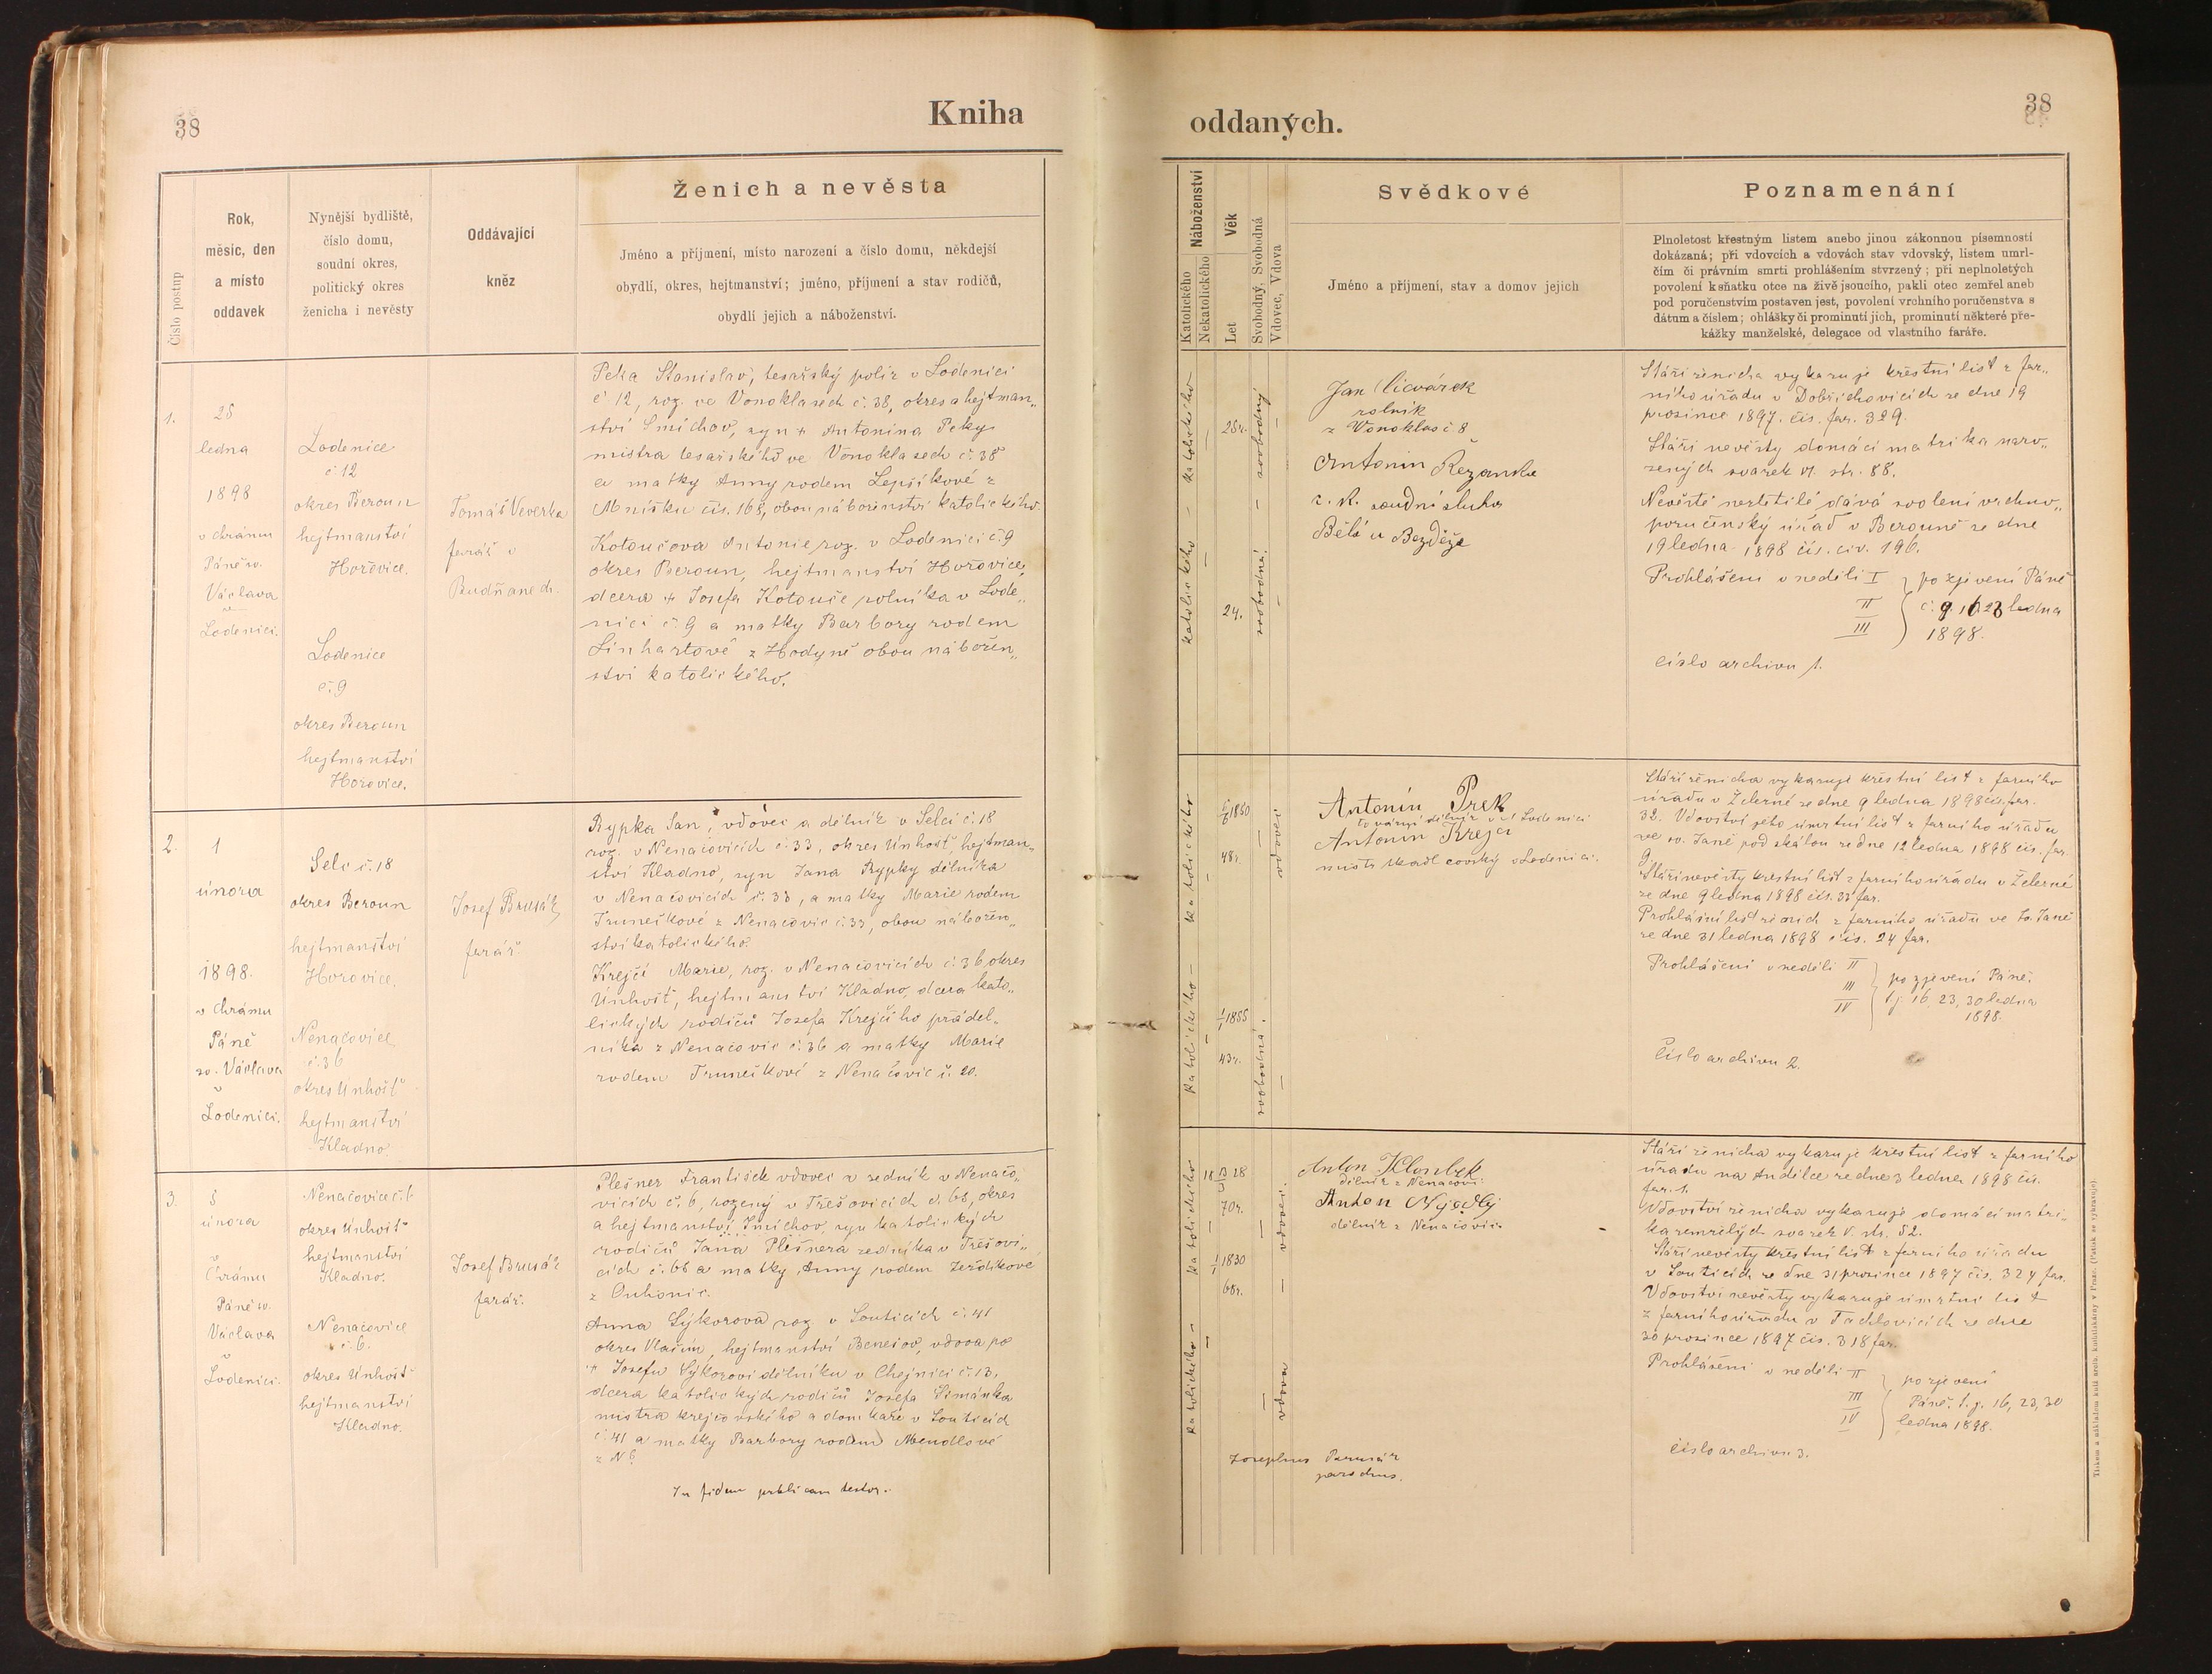 38
Kniha
Číslo postup
Rok,
měsíc, den
a místo
oddavek
Nynější bydliště,
číslo domu,
soudní okres,
politický okres
ženicha i nevěsty
Oddávající
kněz
Ženich a nevěsta
Jméno a příjmení, místo narození a číslo domu, někdejší
obydlí, okres, hejtmanství; jméno, příjmení a stav rodičů,
obydlí jejich a náboženství.
1.
25
ledna
1898
v chrámu
Páně sv.
Václava
v
Lodenici.
Lodenice
č 12
okres Beroun
hejtmanství
Hořovice.
Lodenice
č. 9
okres Beroun
hejtmanství
Horovice.
Tomáš Veverka
farář v
Budňanech.
Peka Stanislav, tesařský polír v Lodenici
č 12, roz. ve Vonoklasech č. 38, okres a hejtman„
ství Smíchov, syn + Antonína Peky
mistra tesařského ve Vonoklasech č. 38
a matky Anny rodem Lepšíkové z
Mníšku čís. 168, obou náboženství katolického.
Kotoučova Antonie roz. v Lodenici č. 9
okres Beroun, hejtmanství Horovice,
dcera + Josefa Kotouče rolníka v Lode„
nici č. 9 a matky Barbory rodem
Linhartové z Hodyně obou nábožen„
ství katolického.
2.
1
února
1898.
v chrámu
Páně
sv. Václava
v
Lodenici.
Selc č. 18
okres Beroun
hejtmanství
Horovice.
Nenačovice
č. 36
okres Unhošť
hejtmanství
Kladno
Josef Brusák
farář.
Rypka Jan, vdovec a dělník v Selci č. 18
roz. v Nenačovicích č. 33, okres Unhošť, hejtman„
ství Kladno, syn Jana Rypky dělníka
v Nenačovicích č. 33, a matky Marie rodem
Trunečkové z Nenačovic č. 33, obou nábožen„
ství katolického.
Krejčí Marie, roz. v Nenačovicích č. 36 okres
Unhošť, hejtmanství Kladno, dcera kato„
lických rodičů Josefa Krejčího prádel„
níka z Nenačovic č. 36 a matky Marie
rodem Trunečkové z Nenačovic č. 20.
3.
8
února
v
Chrámu
Páně sv.
Václava
v
Lodenici.
Nenačovice č. 6
okres Unhošť
hejtmanství
Kladno.
Nenačovice
č. 6.
okres Unhošť
hejtmanství
Kladno.
Josef Brusák
farář.
Plešner František vdovec a zedník v Nenačo„
vicích č. 6, rozený v Třešovicích č. 68, okres
a hejtmanství Smíchov, syn katolických
rodičů Jana Plešnera zedníka v Třešovi„
cích č. 68 a matky Anny rodem
z Ouhonic.
Anna Sýkorova roz v Souticích č. 41
okres Vlašim, hejtmanství Benešov, vdova po
+ Josefu Sýkorovi dělníku v Chejnici č. 13,
dcera katolických rodičů Josefa Šimánka
mistra krejčovského a domkáře v Souticích
č. 41 a matky Barbory rodem Mendlové
z N 6.
In fidem publicam testor.
38
oddaných.
Náboženství
Katolického
Nekatolického
Věk
Let
Svobodný, Svobodná
Vdovec, Vdova
Svědkové
Jméno a příjmení, stav a domov jejich
Poznamenání
Plnoletost křestným listem anebo jinou zákonnou písemností
dokázaná; při vdovcích a vdovách stav vdovský, listem umrl-
čím či právním smrti prohlášením stvrzený; při neplnoletých
povolení k sňatku otce na živě jsoucího, pakli otec zemřel aneb
pod poručenstvím postaven jest, povolení vrchního poručenstva s
dátum a číslem; ohlášky či prominutí jich, prominutí některé pře-
kážky manželské, delegace od vlastního faráře.
katolického
katolického
28 r.
24.
svobodný
svobodná
Jan
rolník
z Vonoklas č 8
Antonín Řezanka
c. k. soudní sluha
Bělá u Bezděze
Stáří ženicha vykazuje křestní list z far„
ního úřadu v Dobřichovicích ze dne 19
prosince 1897. čís. far. 329.
Stáří nevěsty domácí matrika naro„
zených svazek VI. str. 88.
Nevěstě nezletilé dává svolení vrchno„
poručenský úřad v Berouně ze dne
19 ledna 1898 čís. civ. 196.
Prohlášení v neděli I
II
III
po zjevení Páně
č. 9. 16 23 ledna
1898.
číslo archivu 1.
katolického
katolického
1850
48 r.
1/1 1855
43 r.
vdovec
svobodná
Antonín Prek
tovární dělník v Lodenici
Antonín Krejčí
mistr tkadlcovský v Lodenici.
Stáří ženicha vykazuje křestní list z farního
úřadu v Železné ze dne 9 ledna 1898 čís. far.
32. Vdovství jeho úmrtní list z farního úřadu
ve sv. Janě pod skálou ze dne 12 ledna 1898 čís. far
9
Stáří nevěsty křestní list z farního úřadu v Železné
ze dne 9 ledna 1898 čís. 33 far.
Prohlašní list ženich z farního úřadu ve sv. Janě
ze dne 31 ledna 1898 čís. 24 far.
Prohlášení v neděli II
III
IV
po zjevení Páně.
t. j. 16, 23, 30 ledna
1898.
číslo archivu 2.
katolického
katolického
18 13/3 28
70 r.
1/1 1830
68 r.
vdovec
vdova
Anton Kloubek
dělník z Nenačovic
Anton Nejedlý
dělník z Nenačovic.
Josephus Brusák
parochus.
Stáří ženicha vykazuje křestní list z farního
úřadu na Andělce ze dne 3 ledna 1898 čís.
far. 1.
Vdovství ženicha vykazuje domácí matri„
ka zemřelých svazek V. str. 52.
Stáří nevěsty křestní list z farního úřadu
v Souticích ze dne 31 prosince 1897 čís. 324 far.
Vdovství nevěsty vykazuje úmrtní list
z farního úřadu v Tachlovicích ze dne
30 prosince 1897 čís. 318 far.
Prohlášení v neděli II
III
IV
po zjevení
Páně. t. j. 16, 23, 30
ledna 1898.
číslo archivu 3.